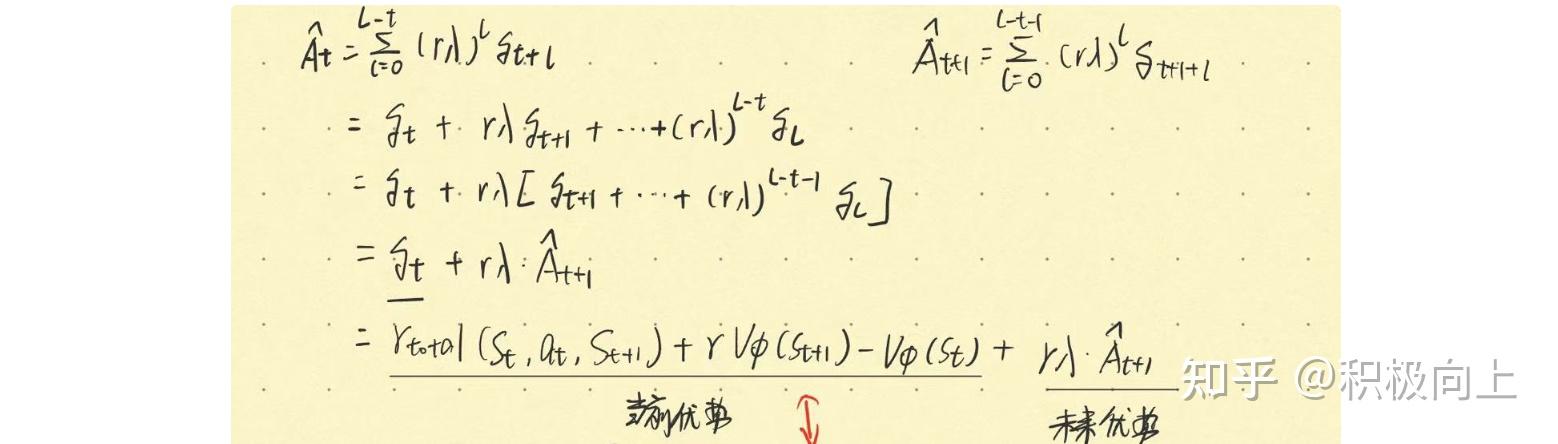 Ât = Σ_{l=0}^{L-t} (rλ)^l δ_{t+l}    Â_{t+1} = Σ_{l=0}^{L-t-1} (rλ)^l δ_{t+1+l}
= δ_t + rλ δ_{t+1} + ⋯ + (rλ)^{L-t} δ_L
= δ_t + rλ [ δ_{t+1} + ⋯ + (rλ)^{L-t-1} δ_L ]
= δ_t + rλ · Â_{t+1}
= r_{total} (S_t, a_t, S_{t+1}) + r Vϕ(S_{t+1}) - Vϕ(S_t) + rλ · Â_{t+1}
当前优势 未来优势
知乎 @积极向上